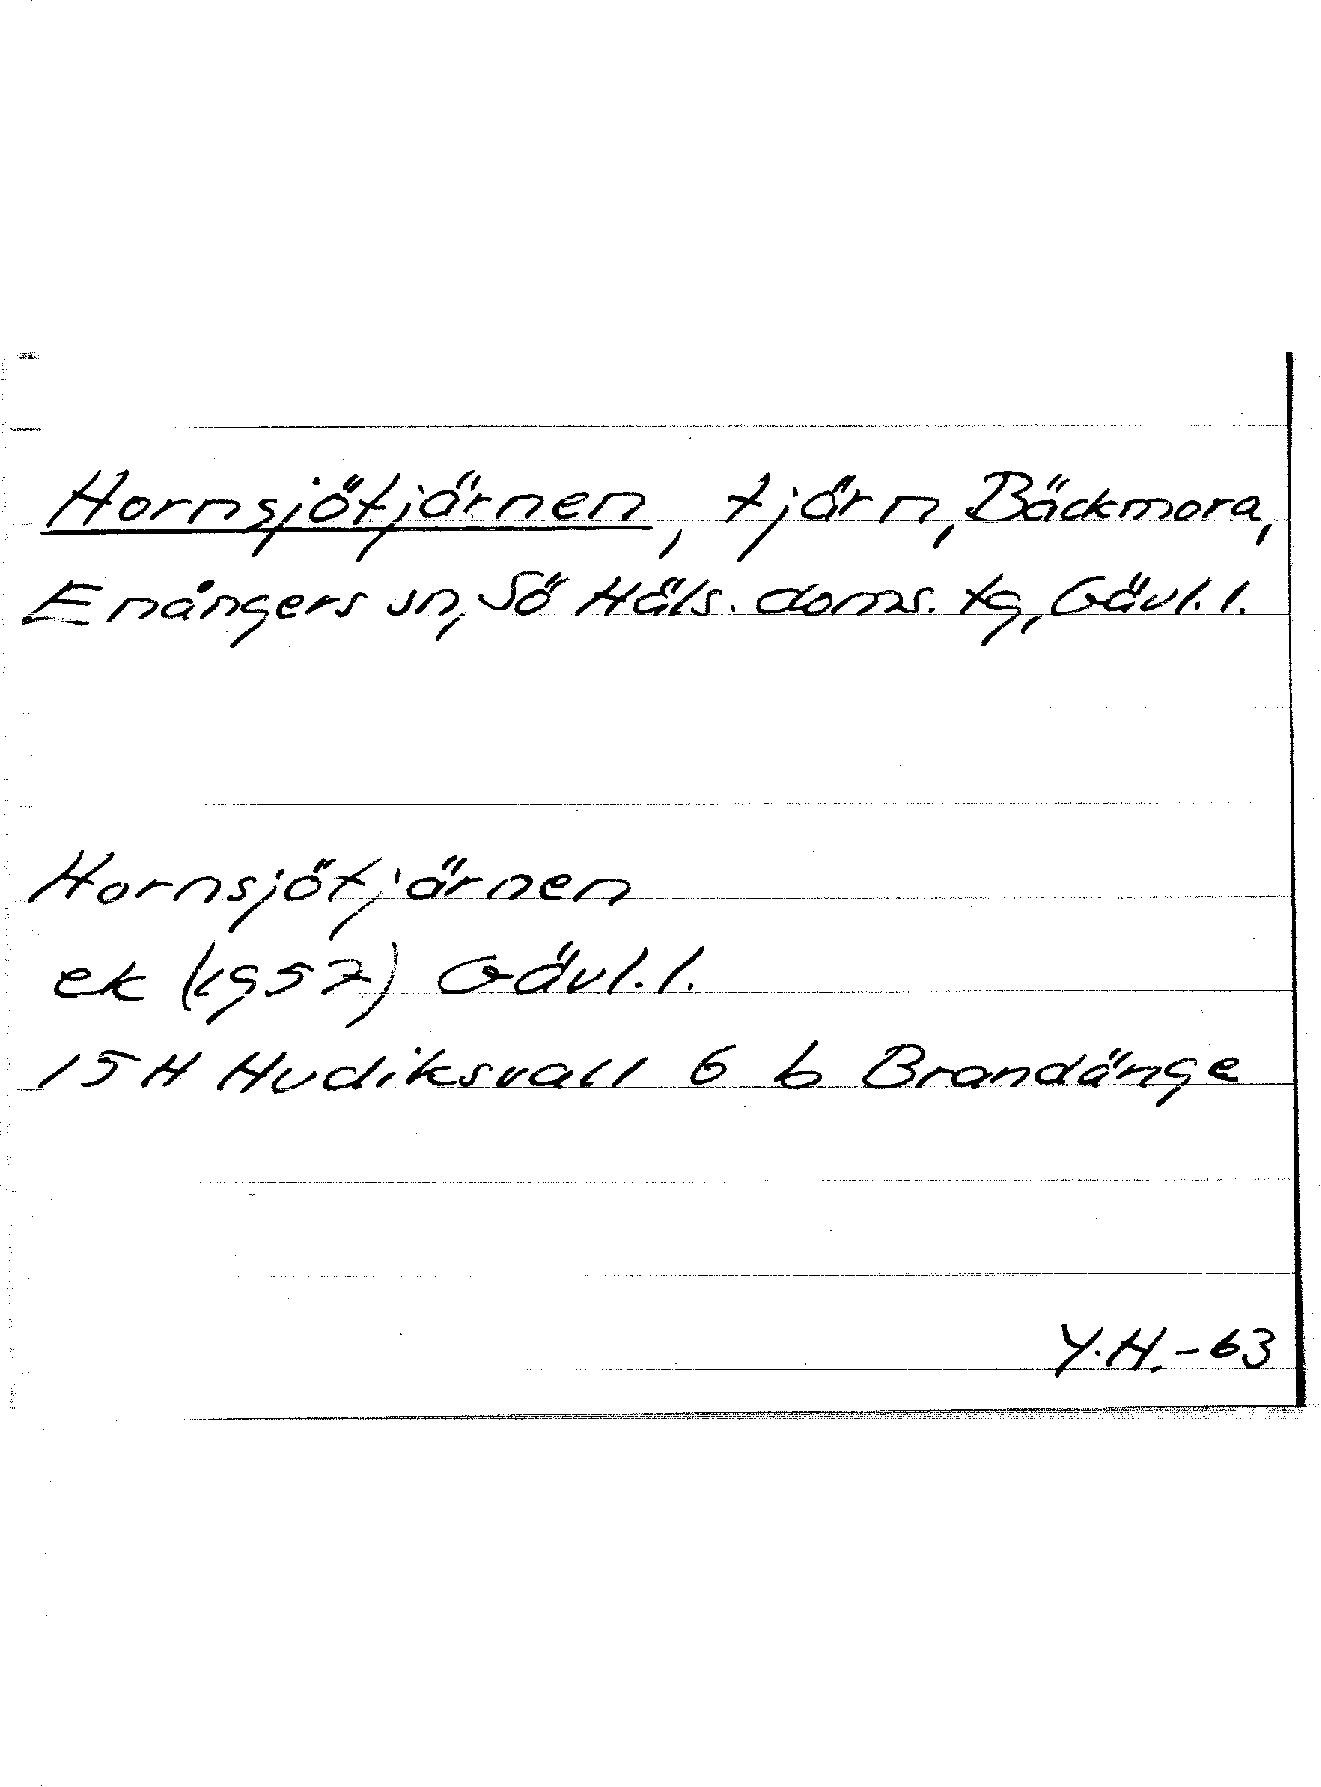 Hornsjötjärnen, tjärn, Bäckmora,
Enångers sn, Sö Häls. doms. tg, Gävl. l.
Hornsjötjärnen
ek (1957) Gävl. l.
15 H Hudiksvall 6 b Brandänge
Y.H.-63